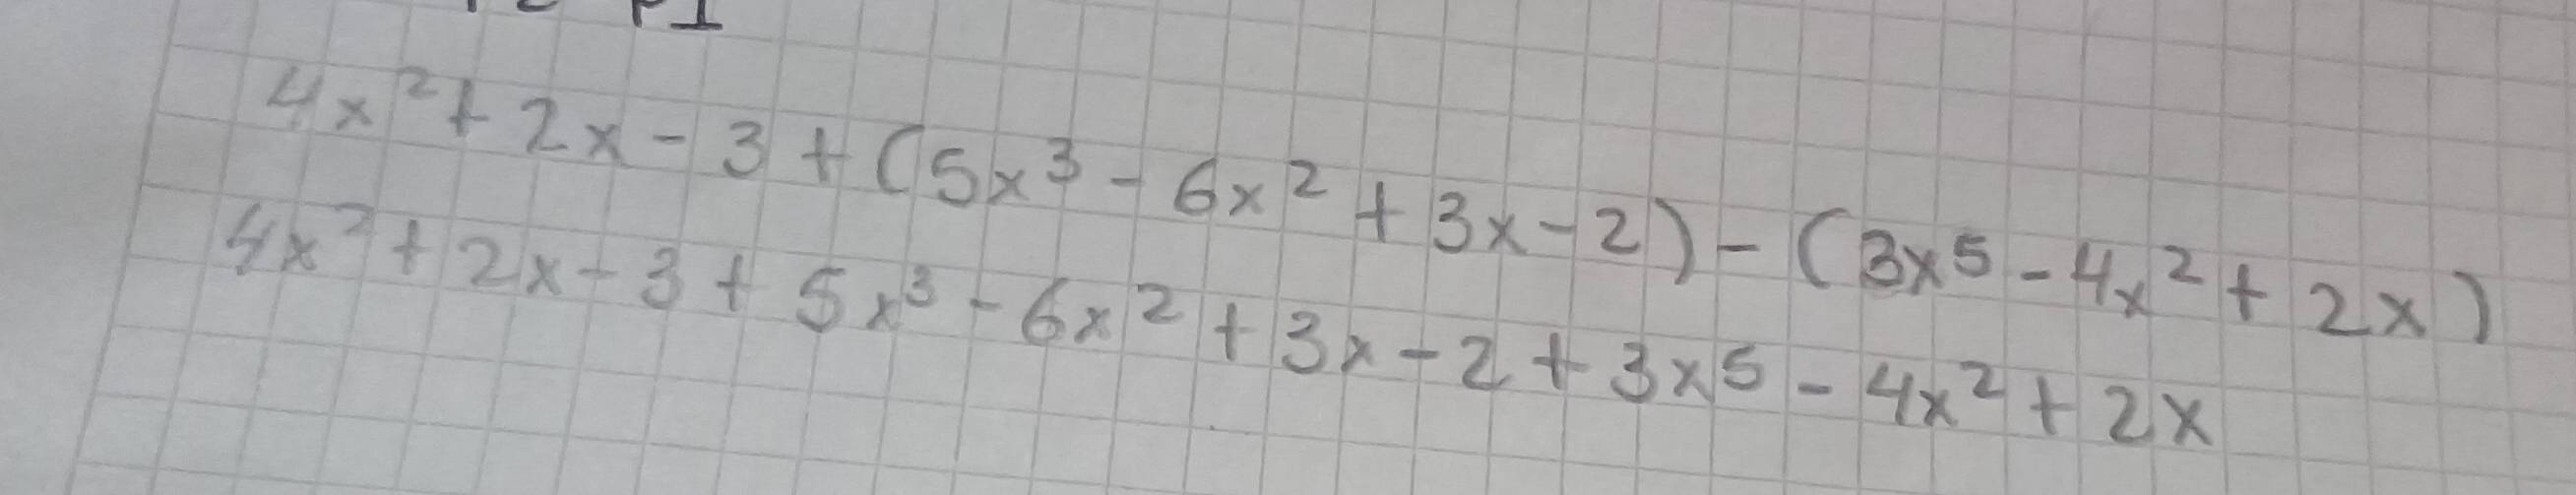 4x² + 2x - 3 + (5x³ - 6x² + 3x - 2) - (3x⁵ - 4x² + 2x)
4x² + 2x - 3 + 5x³ - 6x² + 3x - 2 + 3x⁵ - 4x² + 2x